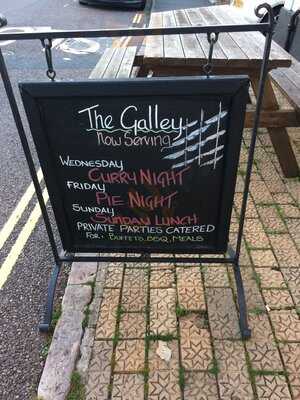 The Galley
Now Serving
WEDNESDAY
CURRY NIGHT
FRIDAY
PIE NIGHT
SUNDAY
SUNDAY LUNCH
PRIVATE PARTIES CATERED
FOR: BUFFETS, BBQ, MEALS